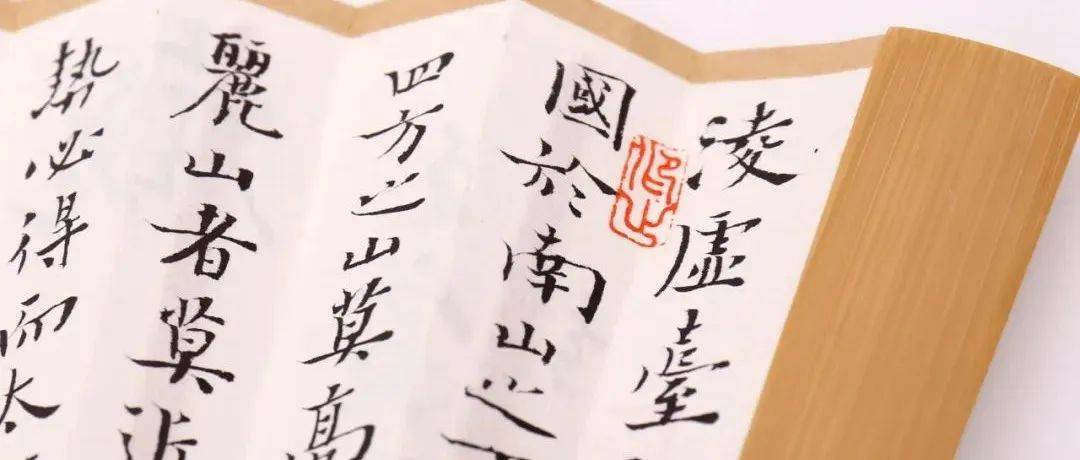 淩虛臺
國於南山之
四方之山莫高
麗山者莫近
勢必得而太